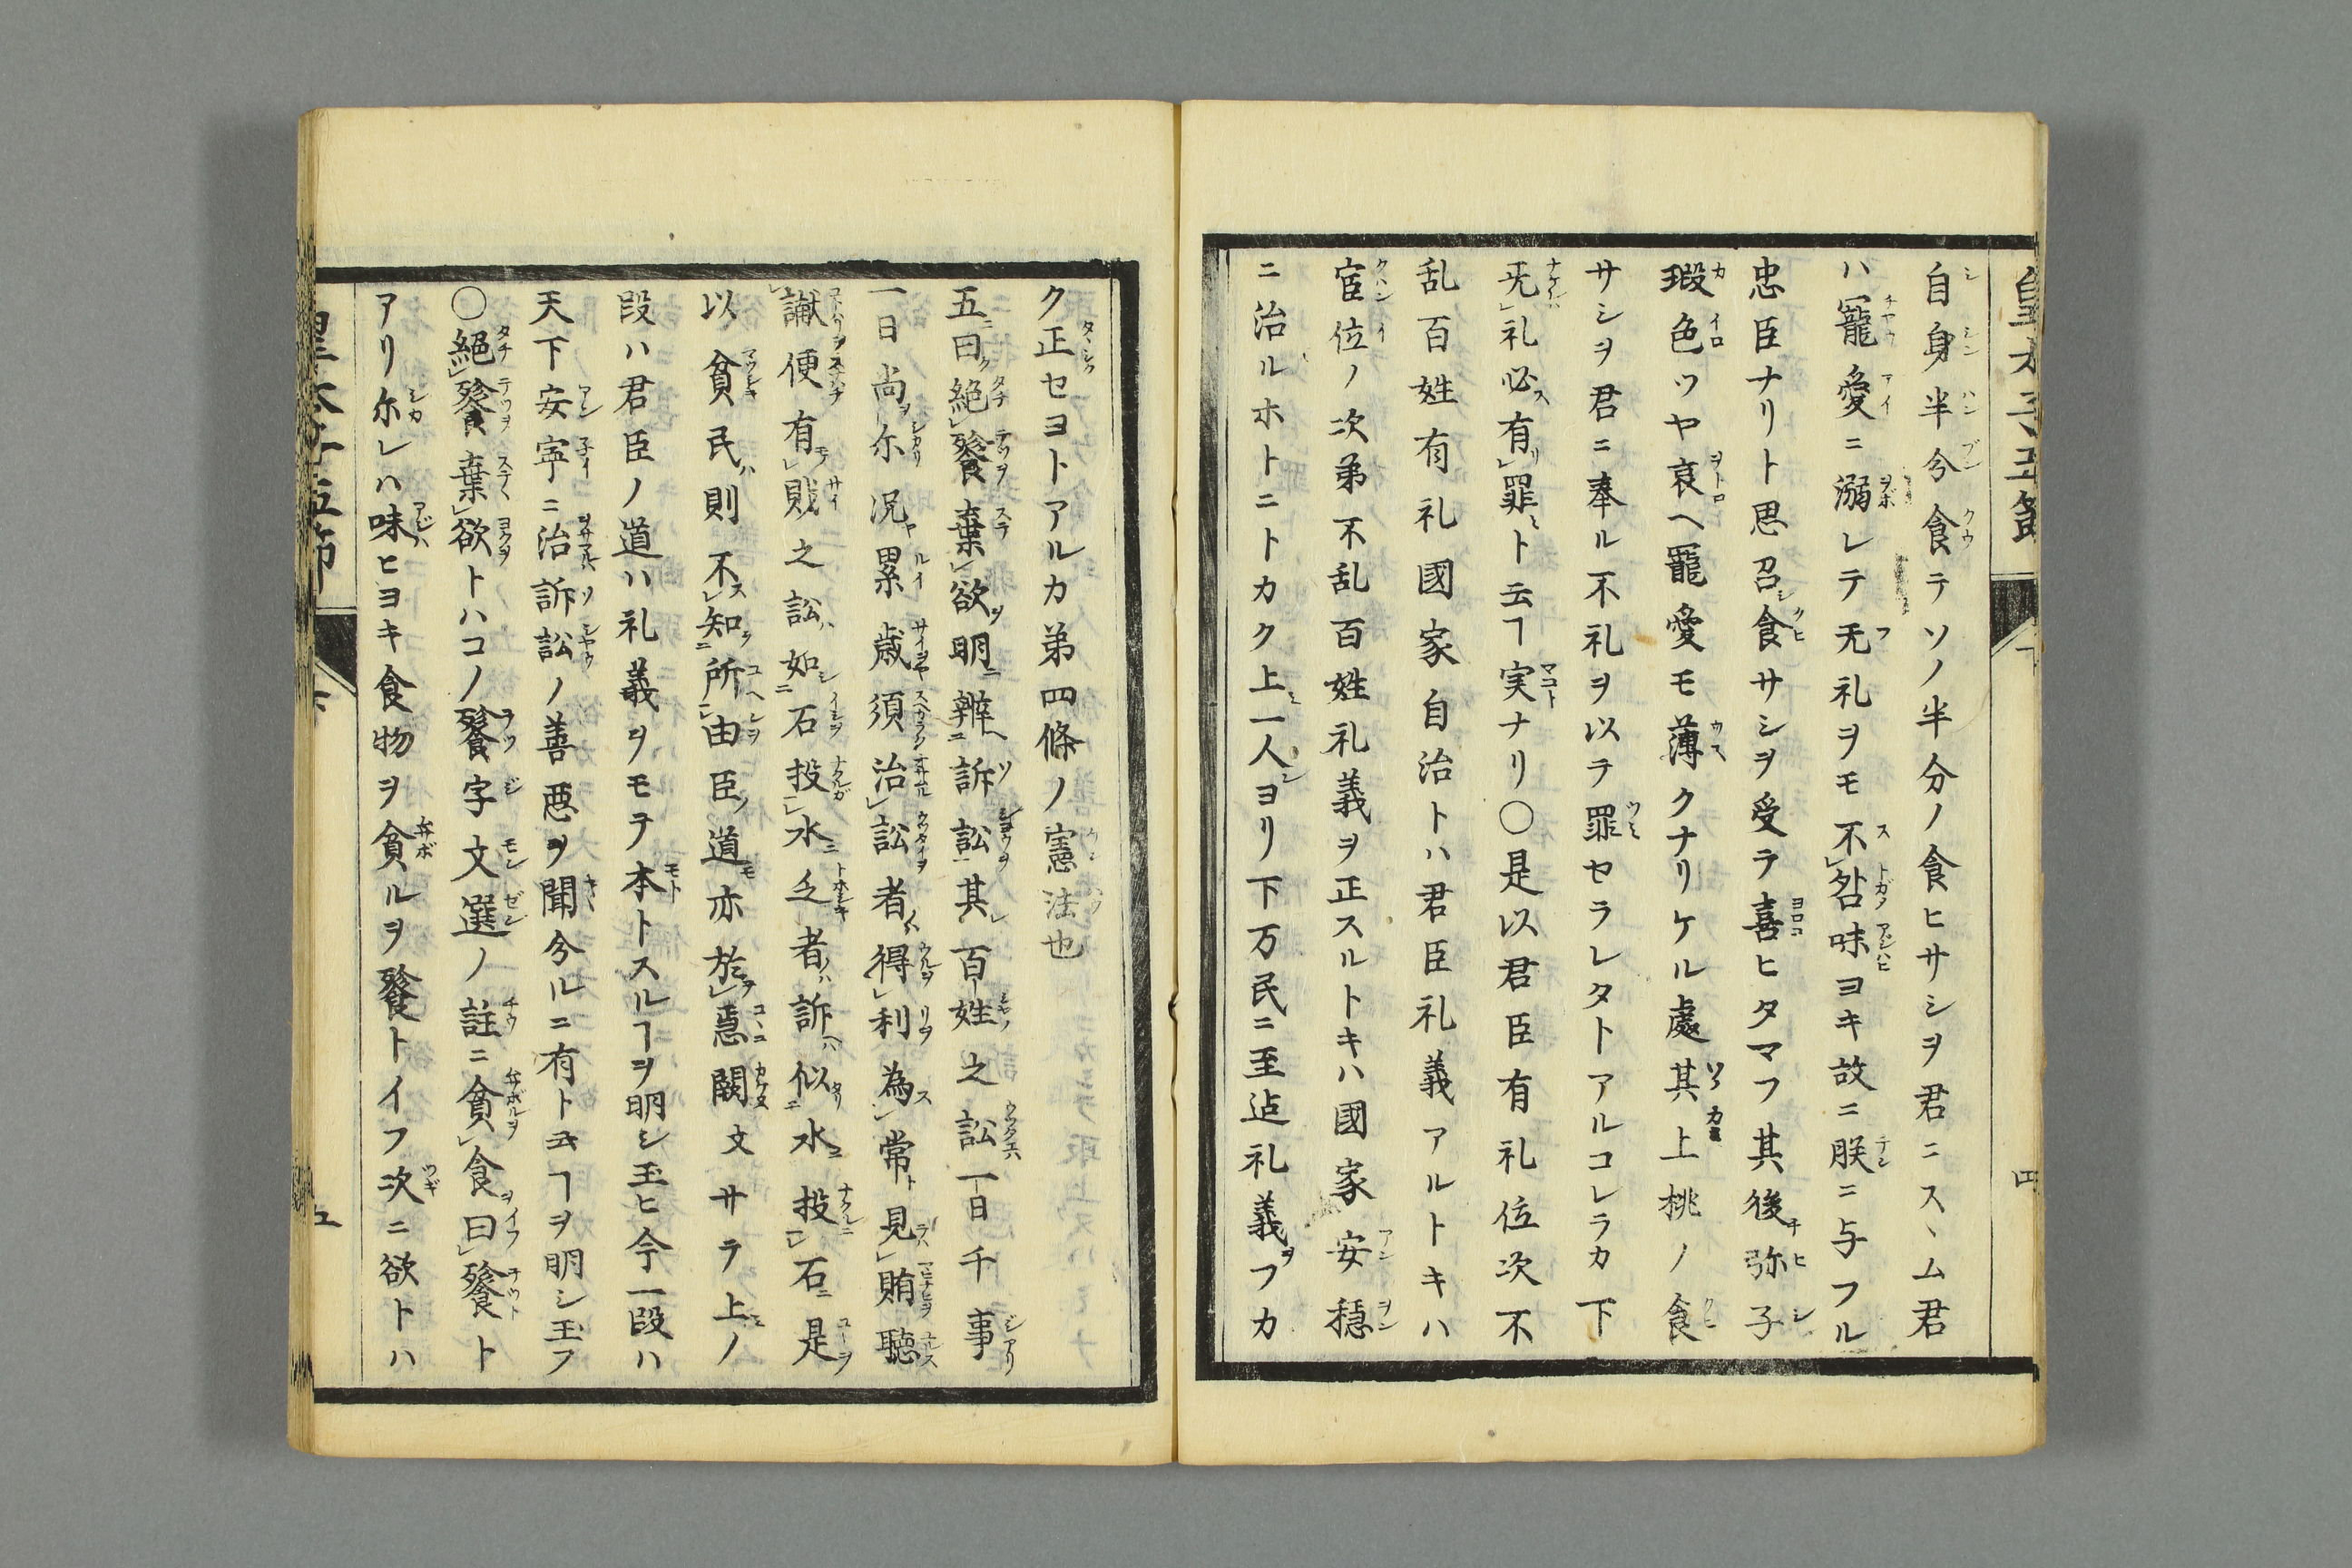 自身半分食テソノ半分ノ食ヒサシヲ君ニスヽム君
ハ寵愛ニ溺レテ无礼ヲモ不咎味ヨキ故ニ朕ニ与フル
忠臣ナリト思召食サシヲ受テ喜ヒタマフ其後弥子
瑕色ツヤ衰ヘ寵愛モ薄クナリケル處其上桃ノ食
サシヲ君ニ奉ル不礼ヲ以テ罪セラレタトアルコレラカ下
无礼必有罪ト云ヿ実ナリ〇是以君臣有礼位次不
乱百姓有礼國家自治トハ君臣礼義アルトキハ
宦位ノ次弟不乱百姓礼義ヲ正スルトキハ國家安穏
ニ治ルホトニトカク上一人ヨリ下万民ニ至迠礼義ヲフカ
ク正セヨトアルカ弟四條ノ憲法也
五曰絕餮棄欲明辨訴訟其百姓之訟一日千事
一日尚尓况累歳須治訟者得利為常見賄聴
讞便有賎之訟如石投水乏者訴似水投石是
以貧民則不知所由臣道亦於焉闕文サラテ上ノ
段ハ君臣ノ道ハ礼義ヲモテ本トスルヿヲ明シ玉ヒ今一段ハ
天下安寧ニ治訴訟ノ善悪ヲ聞分ルニ有ト云ヿヲ明シ玉フ
〇絕餮棄欲トハコノ餮字文選ノ註ニ貪食曰餮ト
アリ尓レハ味ヒヨキ食物ヲ貪ルヲ餮トイフ次ニ欲トハ